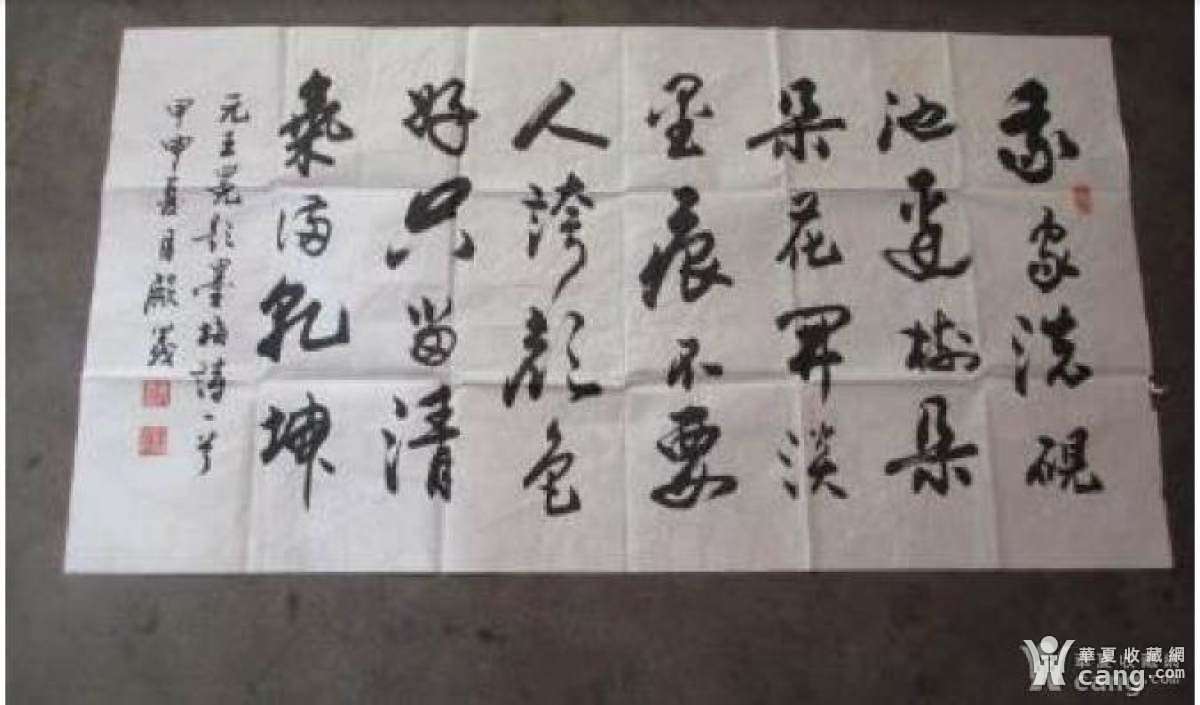 我家洗硯
池邊樹朵
朵花開淡
墨痕不要
人誇顏色
好只留清
氣滿乾坤
元王冕墨梅詩一首
甲申夏月
華夏收藏網
cang.com